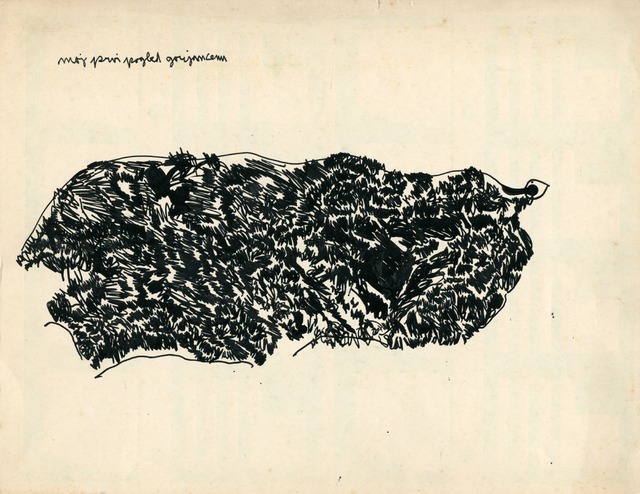 moj prvi pogled gorjancem